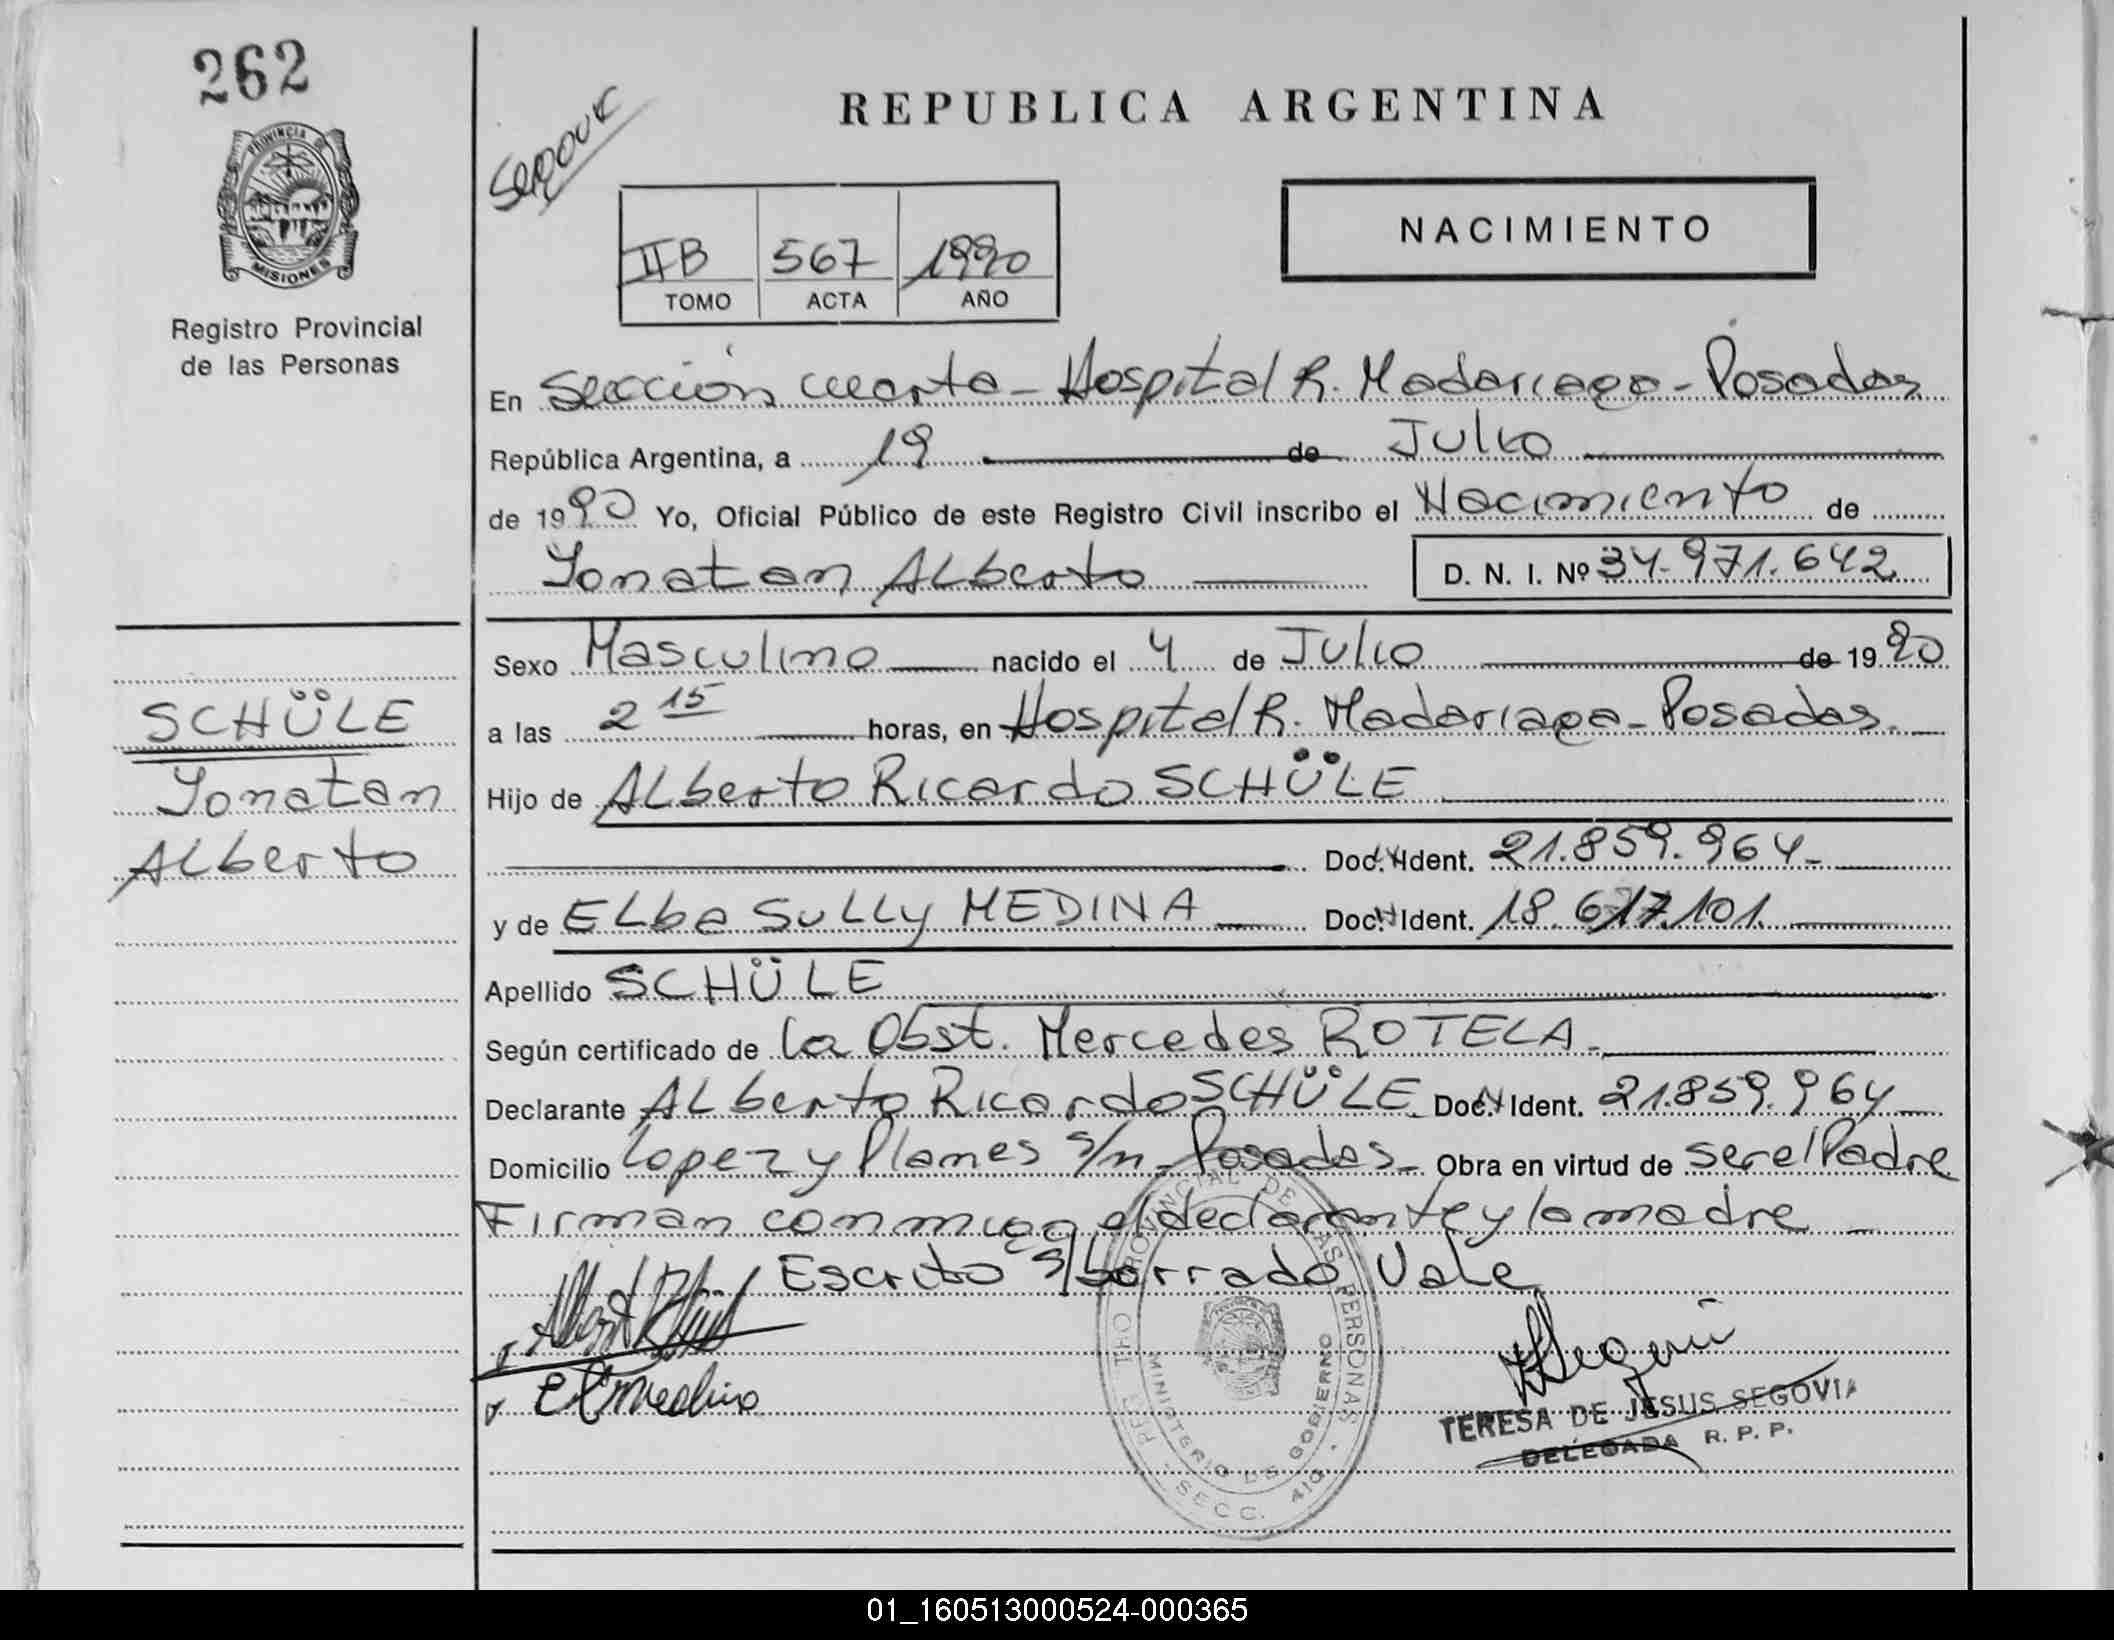 262
PROVINCIA DE
MISIONES
Registro Provincial
de las Personas
REPUBLICA ARGENTINA
IIB 567 1990
TOMO ACTA AÑO
NACIMIENTO
En Sección cuarta - Hospital R. Madariaga - Posadas
República Argentina, a 19 de Julio
de 1990 Yo, Oficial Público de este Registro Civil inscribo el Nacimiento de
Yonatan Alberto D. N. I. Nº 34.971.642
Sexo Masculino nacido el 4 de Julio de 1990
a las 2 15 horas, en Hospital R. Madariaga - Posadas.
SCHÜLE
Yonatan
Alberto
Hijo de Alberto Ricardo SCHÜLE
Doc. Ident. 21.859.964-
y de ELba SuLLy MEDINA Doc. Ident. 18.617.101.
Apellido SCHÜLE
Según certificado de la Obst. Mercedes ROTELA.
Declarante ALberto Ricardo SCHÜLE Doc. Ident. 21.859.964
Domicilio Lopez y Planes s/n - Posadas - Obra en virtud de ser el Padre
Firman conmigo el declarante y la madre
Escrito s/borrado, Vale
PROVINCIAL DE LAS PERSONAS
MINISTERIO DE GOBIERNO
SECC. 4ta.
TERESA DE JESUS SEGOVIA
DELEGADA R. P. P.
01_160513000524-000365